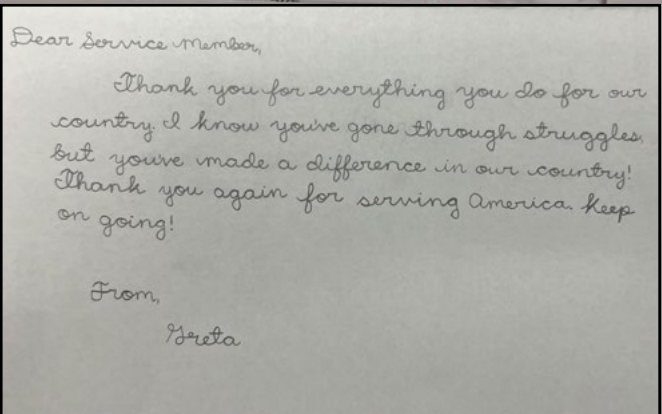 Dear Service Member,
Thank you for everything you do for our
country. I know you've gone through struggles,
but you've made a difference in our country!
Thank you again for serving America. Keep
on going!
From,
Greta